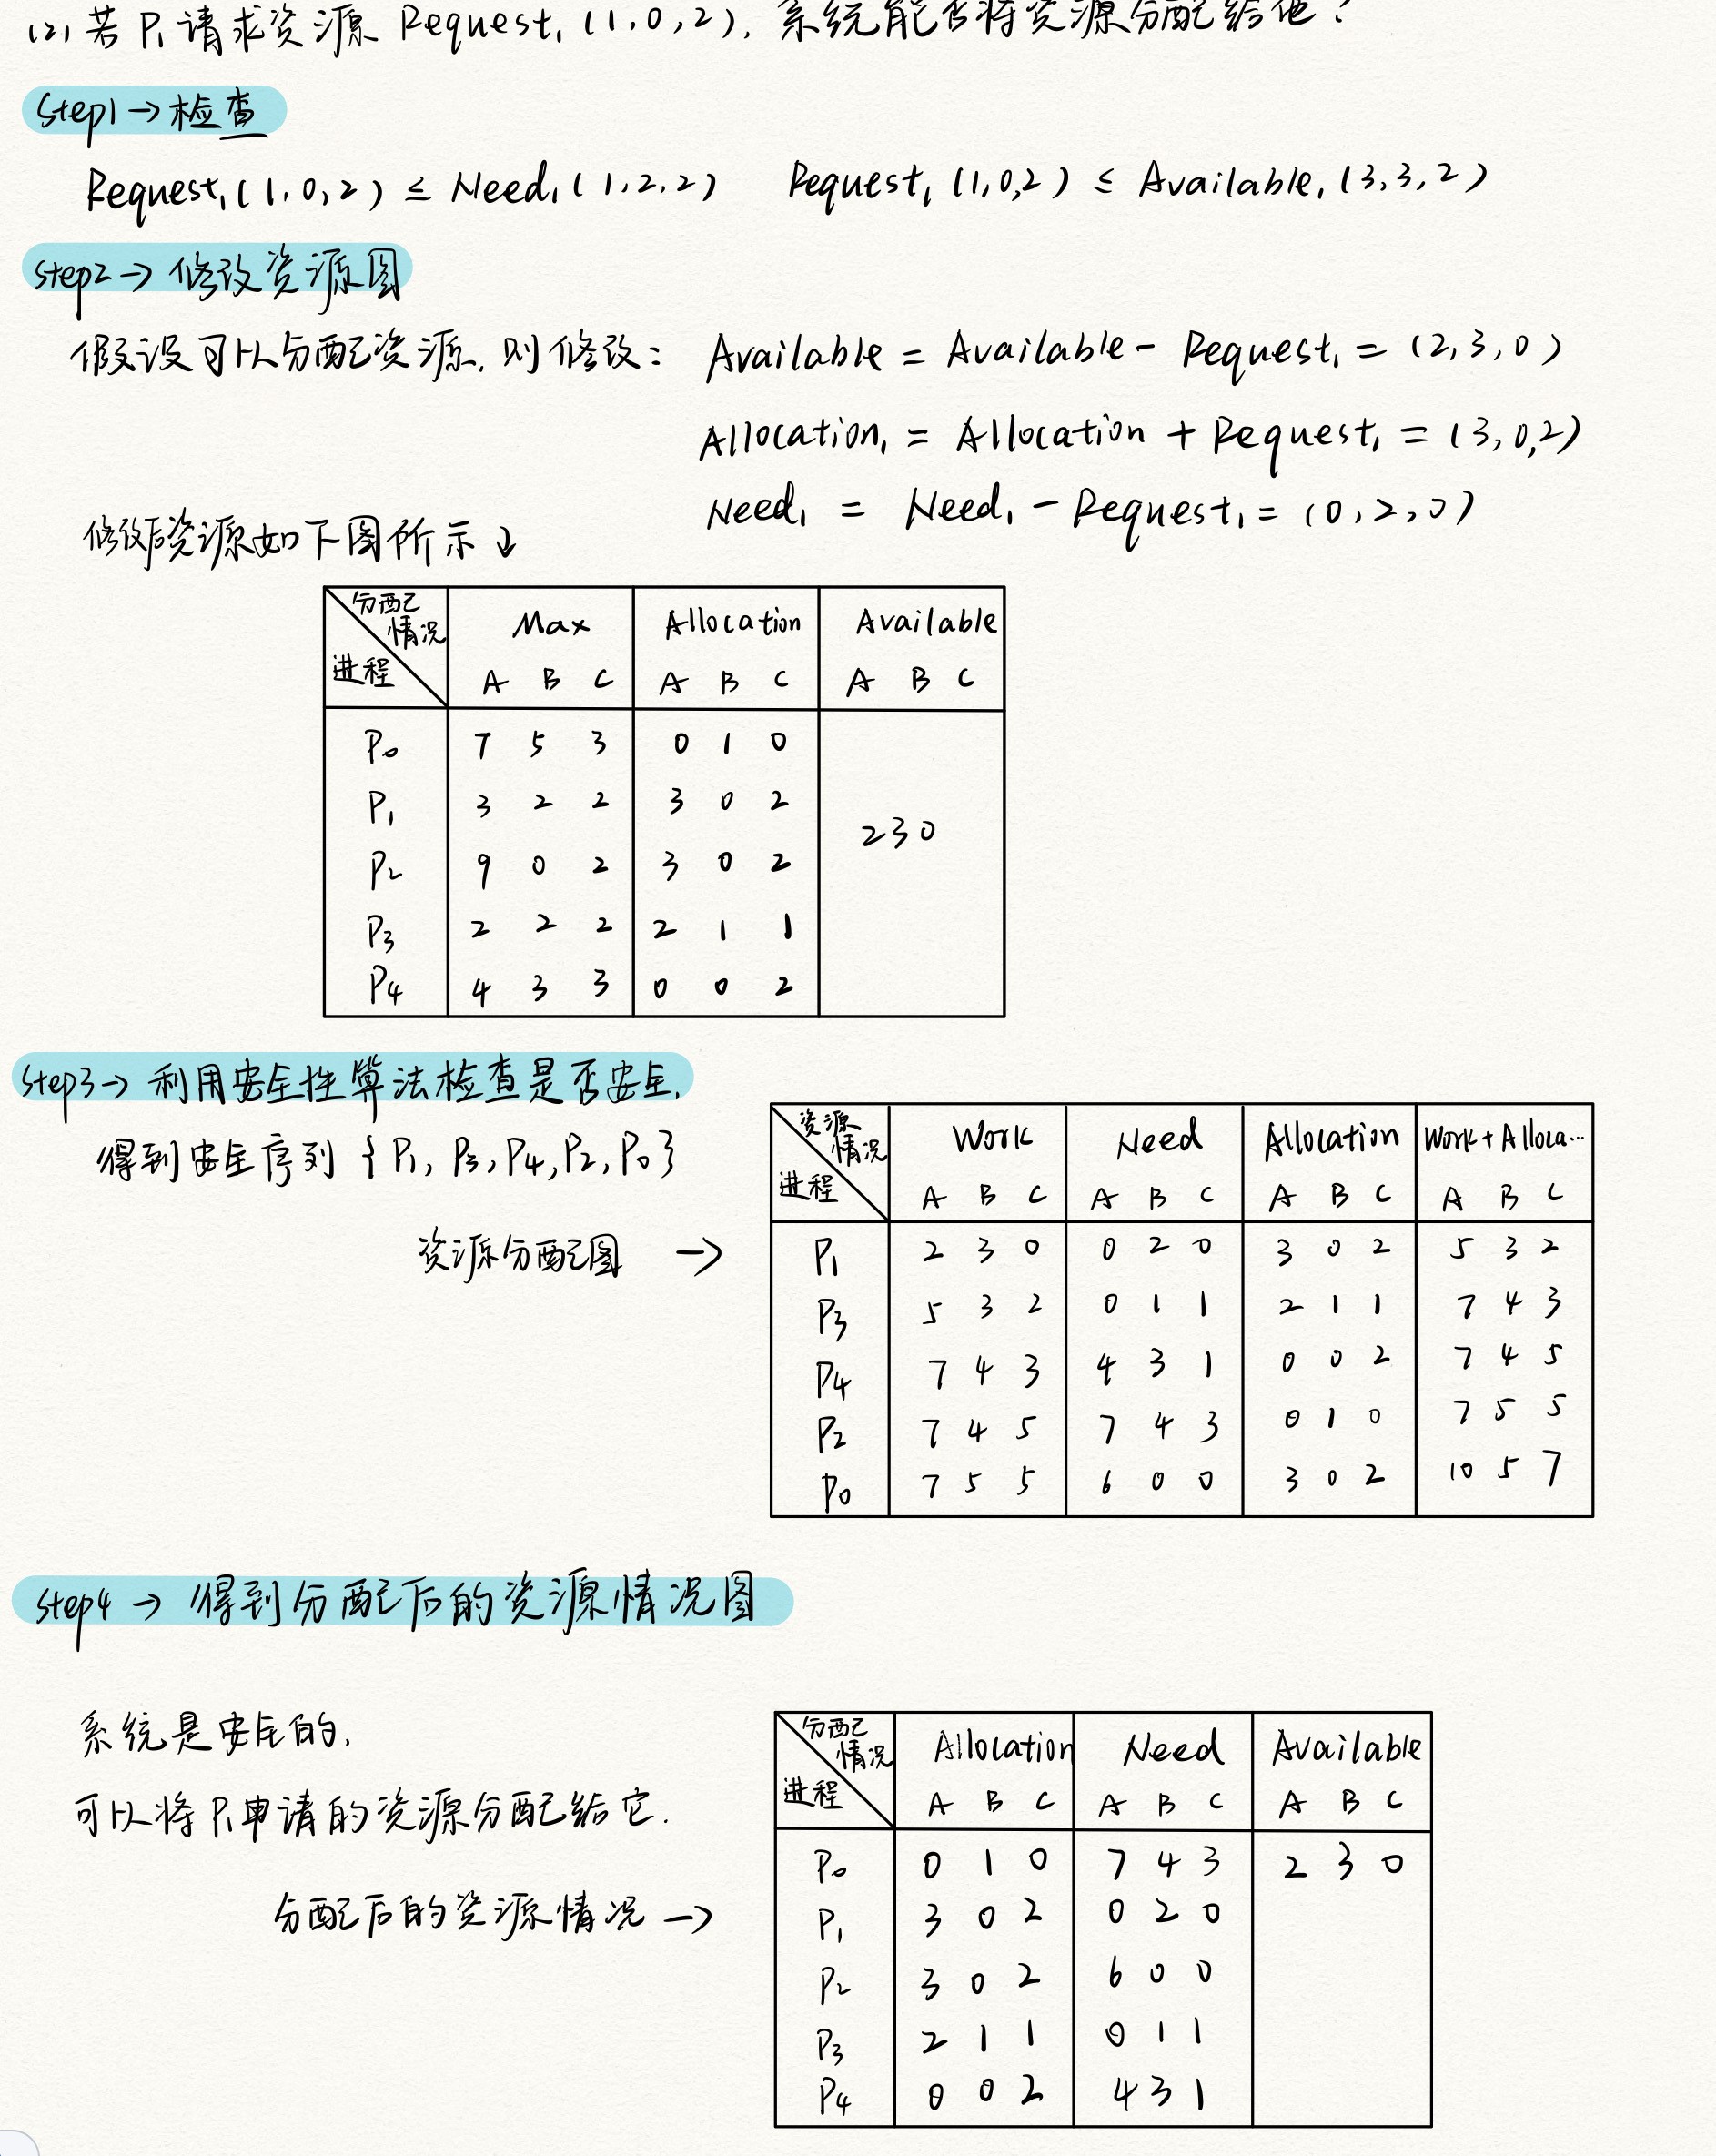 (2) 若 P₁ 请求资源 Request₁ (1,0,2), 系统能否将资源分配给他?
Step1→检查
Request₁(1,0,2) ≤ Need₁(1,2,2) Request₁(1,0,2) ≤ Available₁(3,3,2)
Step2→修改资源图
假设可以分配资源,则修改: Available = Available - Request₁ = (2,3,0)
Allocation₁ = Allocation + Request₁ = (3,0,2)
Need₁ = Need₁ - Request₁ = (0,2,0)
修改后资源如下图所示↓
分配情况 Max Allocation Available
进程 A B C A B C A B C
P₀ 7 5 3 0 1 0
P₁ 3 2 2 3 0 2
2 3 0
P₂ 9 0 2 3 0 2
P₃ 2 2 2 2 1 1
P₄ 4 3 3 0 0 2
Step3→利用安全性算法检查是否安全.
得到安全序列 {P₁, P₃, P₄, P₂, P₀}
资源分配图 →
资源情况 Work Need Allocation Work+Alloca...
进程 A B C A B C A B C A B C
P₁ 2 3 0 0 2 0 3 0 2 5 3 2
P₃ 5 3 2 0 1 1 2 1 1 7 4 3
P₄ 7 4 3 4 3 1 0 0 2 7 4 5
P₂ 7 4 5 7 4 3 0 1 0 7 5 5
P₀ 7 5 5 6 0 0 3 0 2 10 5 7
Step4→得到分配后的资源情况图
系统是安全的,
可以将P₁申请的资源分配给它.
分配后的资源情况→
分配情况 Allocation Need Available
进程 A B C A B C A B C
P₀ 0 1 0 7 4 3 2 3 0
P₁ 3 0 2 0 2 0
P₂ 3 0 2 6 0 0
P₃ 2 1 1 0 1 1
P₄ 0 0 2 4 3 1